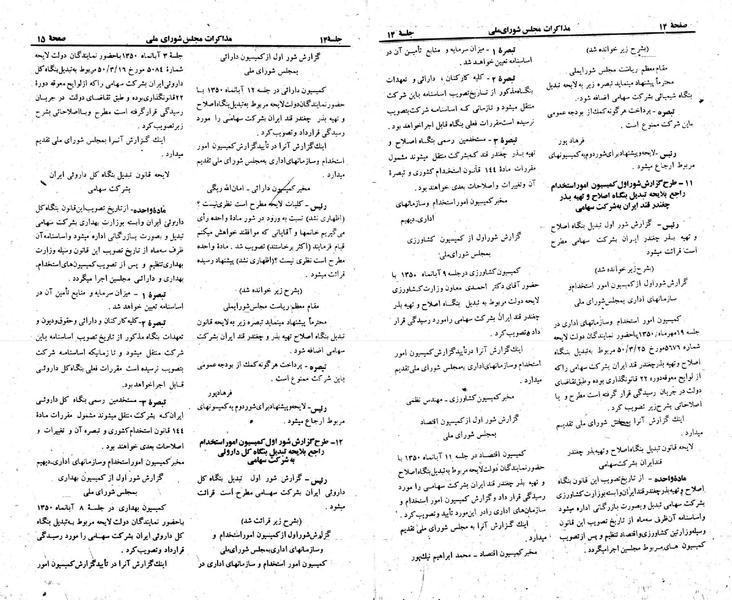 صفحه ۱۴
مذاکرات مجلس شورای ملی
جلسه ۱۴
(بشرح زیر خوانده شد)
مقام معظم ریاست مجلس شورایملی
محترماً پیشنهاد مینماید تبصره زیر به لایحه تبدیل
بنگاه شیمیائی بشرکت سهامی اضافه شود.
تبصره - پرداخت هرگونه کمک از بودجه عمومی
باین شرکت ممنوع است.
فرهاد پور
رئیس - لایحه و پیشنهاد برای شور دوم به کمیسیونهای
مربوط ارجاع میشود.
۱۱ - طرح گزارش شور اول کمیسیون امور استخدام
راجع بلایحه تبدیل بنگاه اصلاح و تهیه بذر
چغندر قند ایران به شرکت سهامی
رئیس - گزارش شور اول لایحه تبدیل بنگاه اصلاح
و تهیه بذر چغندر ایران بشرکت سهامی مطرح
است قرائت میشود.
(بشرح زیر خوانده شد)
گزارش شور اول از کمیسیون امور استخدام
و سازمانهای اداری به مجلس شورای ملی
کمیسیون امور استخدام و سازمانهای اداری در
جلسه ۱۹ مهرماه ۱۳۵۰ باحضور نمایندگان دولت لایحه
شماره ۵۶۷۶ مورخ ۵۰/۳/۲۵ مربوط به تبدیل بنگاه
اصلاح و تهیه بذر چغندر قند ایران بشرکت سهامی را که
از لوایح معوقه دوره ۲۲ قانونگذاری بوده و طبق تقاضای
دولت در جریان رسیدگی قرار گرفته است مطرح و با
اصلاحاتی بشرح زیر تصویب کرد.
اینک گزارش آنرا به مجلس شورای ملی تقدیم
میدارد.
لایحه قانون تبدیل بنگاه اصلاح و تهیه بذر چغندر
قند ایران بشرکت سهامی
ماده واحده - از تاریخ تصویب این قانون بنگاه
اصلاح و تهیه بذر چغندر قند ایران وابسته بوزارت کشاورزی
بشرکت سهامی تبدیل و بصورت بازرگانی اداره میشود
و اساسنامه آن ظرف سه ماه از تاریخ تصویب این قانون
وسیله وزارتین کشاورزی و اقتصاد تنظیم و پس از تصویب
کمیسیون های مربوط مجلسین اجرا میگردد.
تبصره ۱ - میزان سرمایه و منابع تأمین آن در
اساسنامه تعیین خواهد شد.
تبصره ۲ - کلیه کارکنان، دارائی و تعهدات
بنگاه مذکور از تاریخ تصویب اساسنامه باین شرکت
منتقل میشود و تا زمانی که اساسنامه شرکت بتصویب
نرسیده است مقررات فعلی بنگاه قابل اجرا خواهد بود.
تبصره ۳ - مستخدمین رسمی بنگاه اصلاح و
تهیه بذر چغندر قند که بشرکت منتقل میشوند مشمول
مقررات ماده ۱۴۴ قانون استخدام کشوری و تبصره
آن و تغییرات و اصلاحات بعدی خواهند بود.
مخبر کمیسیون امور استخدام و سازمانهای
اداری - دیهیم
گزارش شور اول از کمیسیون کشاورزی
به مجلس شورای ملی
کمیسیون کشاورزی در جلسه ۹ آبانماه ۱۳۵۰ با
حضور آقای دکتر احمدی معاون وزارت کشاورزی
لایحه دولت مربوط به تبدیل بنگاه اصلاح و تهیه بذر
چغندر قند ایران بشرکت سهامی را مورد رسیدگی قرار
داد و تصویب کرد.
اینک گزارش آنرا در تأیید گزارش کمیسیون امور
استخدام و سازمانهای اداری به مجلس شورای ملی تقدیم
میدارد.
مخبر کمیسیون کشاورزی - مهندس نظمی
گزارش شور اول از کمیسیون اقتصاد
به مجلس شورای ملی
کمیسیون اقتصاد در جلسه ۱۱ آبانماه ۱۳۵۰ با حضور
نمایندگان دولت لایحه مربوط به تبدیل بنگاه اصلاح و
تهیه بذر چغندر قند ایران بشرکت سهامی را مورد
رسیدگی قرار داد و گزارش کمیسیون امور استخدام و
سازمانهای اداری را در این مورد تأیید و تصویب کرد.
اینک گزارش آنرا به مجلس شورای ملی تقدیم
میدارد.
مخبر کمیسیون اقتصاد - محمد ابراهیم نیک پور
جلسه ۱۴
مذاکرات مجلس شورای ملی
صفحه ۱۵
گزارش شور اول از کمیسیون دارائی
به مجلس شورای ملی
کمیسیون دارائی در جلسه ۱۲ آبانماه ۱۳۵۰ با
حضور نمایندگان دولت لایحه مربوط به تبدیل بنگاه اصلاح
و تهیه بذر چغندر قند ایران بشرکت سهامی را مورد
رسیدگی قرارداد و تصویب کرد.
اینک گزارش آنرا در تأیید گزارش کمیسیون امور
استخدام و سازمانهای اداری به مجلس شورای ملی تقدیم
میدارد.
مخبر کمیسیون دارائی - امان الله ریگی
رئیس - کلیات لایحه مطرح است نظری نیست؟
(اظهاری نشد) نسبت به ورود در شور ماده واحده رأی
می گیریم خانمها و آقایانی که موافقند خواهش میکنم
قیام فرمایند (اکثر برخاستند) تصویب شد. ماده واحده
مطرح است نظری نیست؟ (اظهاری نشد) پیشنهاد رسیده
قرائت میشود.
(بشرح زیر خوانده شد)
مقام معظم ریاست مجلس شورایملی
محترماً پیشنهاد مینماید تبصره زیر به لایحه قانون
تبدیل بنگاه اصلاح و تهیه بذر چغندر قند ایران بشرکت
سهامی اضافه شود.
تبصره - پرداخت هرگونه کمک از بودجه عمومی
باین شرکت ممنوع است.
فرهاد پور
رئیس - لایحه و پیشنهاد برای شور دوم به کمیسیونهای
مربوط ارجاع میشود.
۱۲ - طرح گزارش شور اول کمیسیون امور استخدام
راجع بلایحه تبدیل بنگاه کل داروئی
به شرکت سهامی
رئیس - گزارش شور اول لایحه تبدیل بنگاه کل
داروئی ایران بشرکت سهامی مطرح است قرائت
میشود.
(بشرح زیر قرائت شد)
گزارش شور اول از کمیسیون امور استخدام و
سازمانهای اداری به مجلس شورای ملی
کمیسیون امور استخدام و سازمانهای اداری در
جلسه ۳ آبانماه ۱۳۵۰ باحضور نمایندگان دولت لایحه
شماره ۵۰۸۴ مورخ ۵۰/۳/۱۹ مربوط به تبدیل بنگاه کل
داروئی ایران بشرکت سهامی را که از لوایح معوقه دوره
۲۲ قانونگذاری بوده و طبق تقاضای دولت در جریان
رسیدگی قرار گرفته است مطرح و با اصلاحاتی بشرح
زیر تصویب کرد.
اینک گزارش آنرا به مجلس شورای ملی تقدیم
میدارد.
لایحه قانون تبدیل بنگاه کل داروئی ایران
بشرکت سهامی
ماده واحده - از تاریخ تصویب این قانون بنگاه کل
داروئی ایران وابسته به وزارت بهداری بشرکت سهامی
تبدیل و بصورت بازرگانی اداره میشود و اساسنامه آن
ظرف سه ماه از تاریخ تصویب این قانون وسیله وزارت
بهداری تنظیم و پس از تصویب کمیسیون های استخدام،
بهداری و دارائی مجلسین اجرا میگردد.
تبصره ۱ - میزان سرمایه و منابع تأمین آن در
اساسنامه تعیین خواهد شد.
تبصره ۲ - کلیه کارکنان و دارائی و حقوق و دیون و
تعهدات بنگاه مذکور از تاریخ تصویب اساسنامه باین
شرکت منتقل میشود و تا زمانیکه اساسنامه شرکت
بتصویب نرسیده است مقررات فعلی بنگاه کل داروئی
قابل اجرا خواهد بود.
تبصره ۳ - مستخدمین رسمی بنگاه کل داروئی
ایران که بشرکت منتقل میشوند مشمول مقررات ماده
۱۴۴ قانون استخدام کشوری و تبصره آن و تغییرات و
اصلاحات بعدی خواهند بود.
مخبر کمیسیون امور استخدام و سازمانهای اداری - دیهیم
گزارش شور اول از کمیسیون بهداری
به مجلس شورای ملی
کمیسیون بهداری در جلسه ۸ آبانماه ۱۳۵۰
باحضور نمایندگان دولت لایحه مربوط به تبدیل بنگاه
کل داروئی ایران بشرکت سهامی را مورد رسیدگی
قرارداد و تصویب کرد.
اینک گزارش آنرا در تأیید گزارش کمیسیون امور